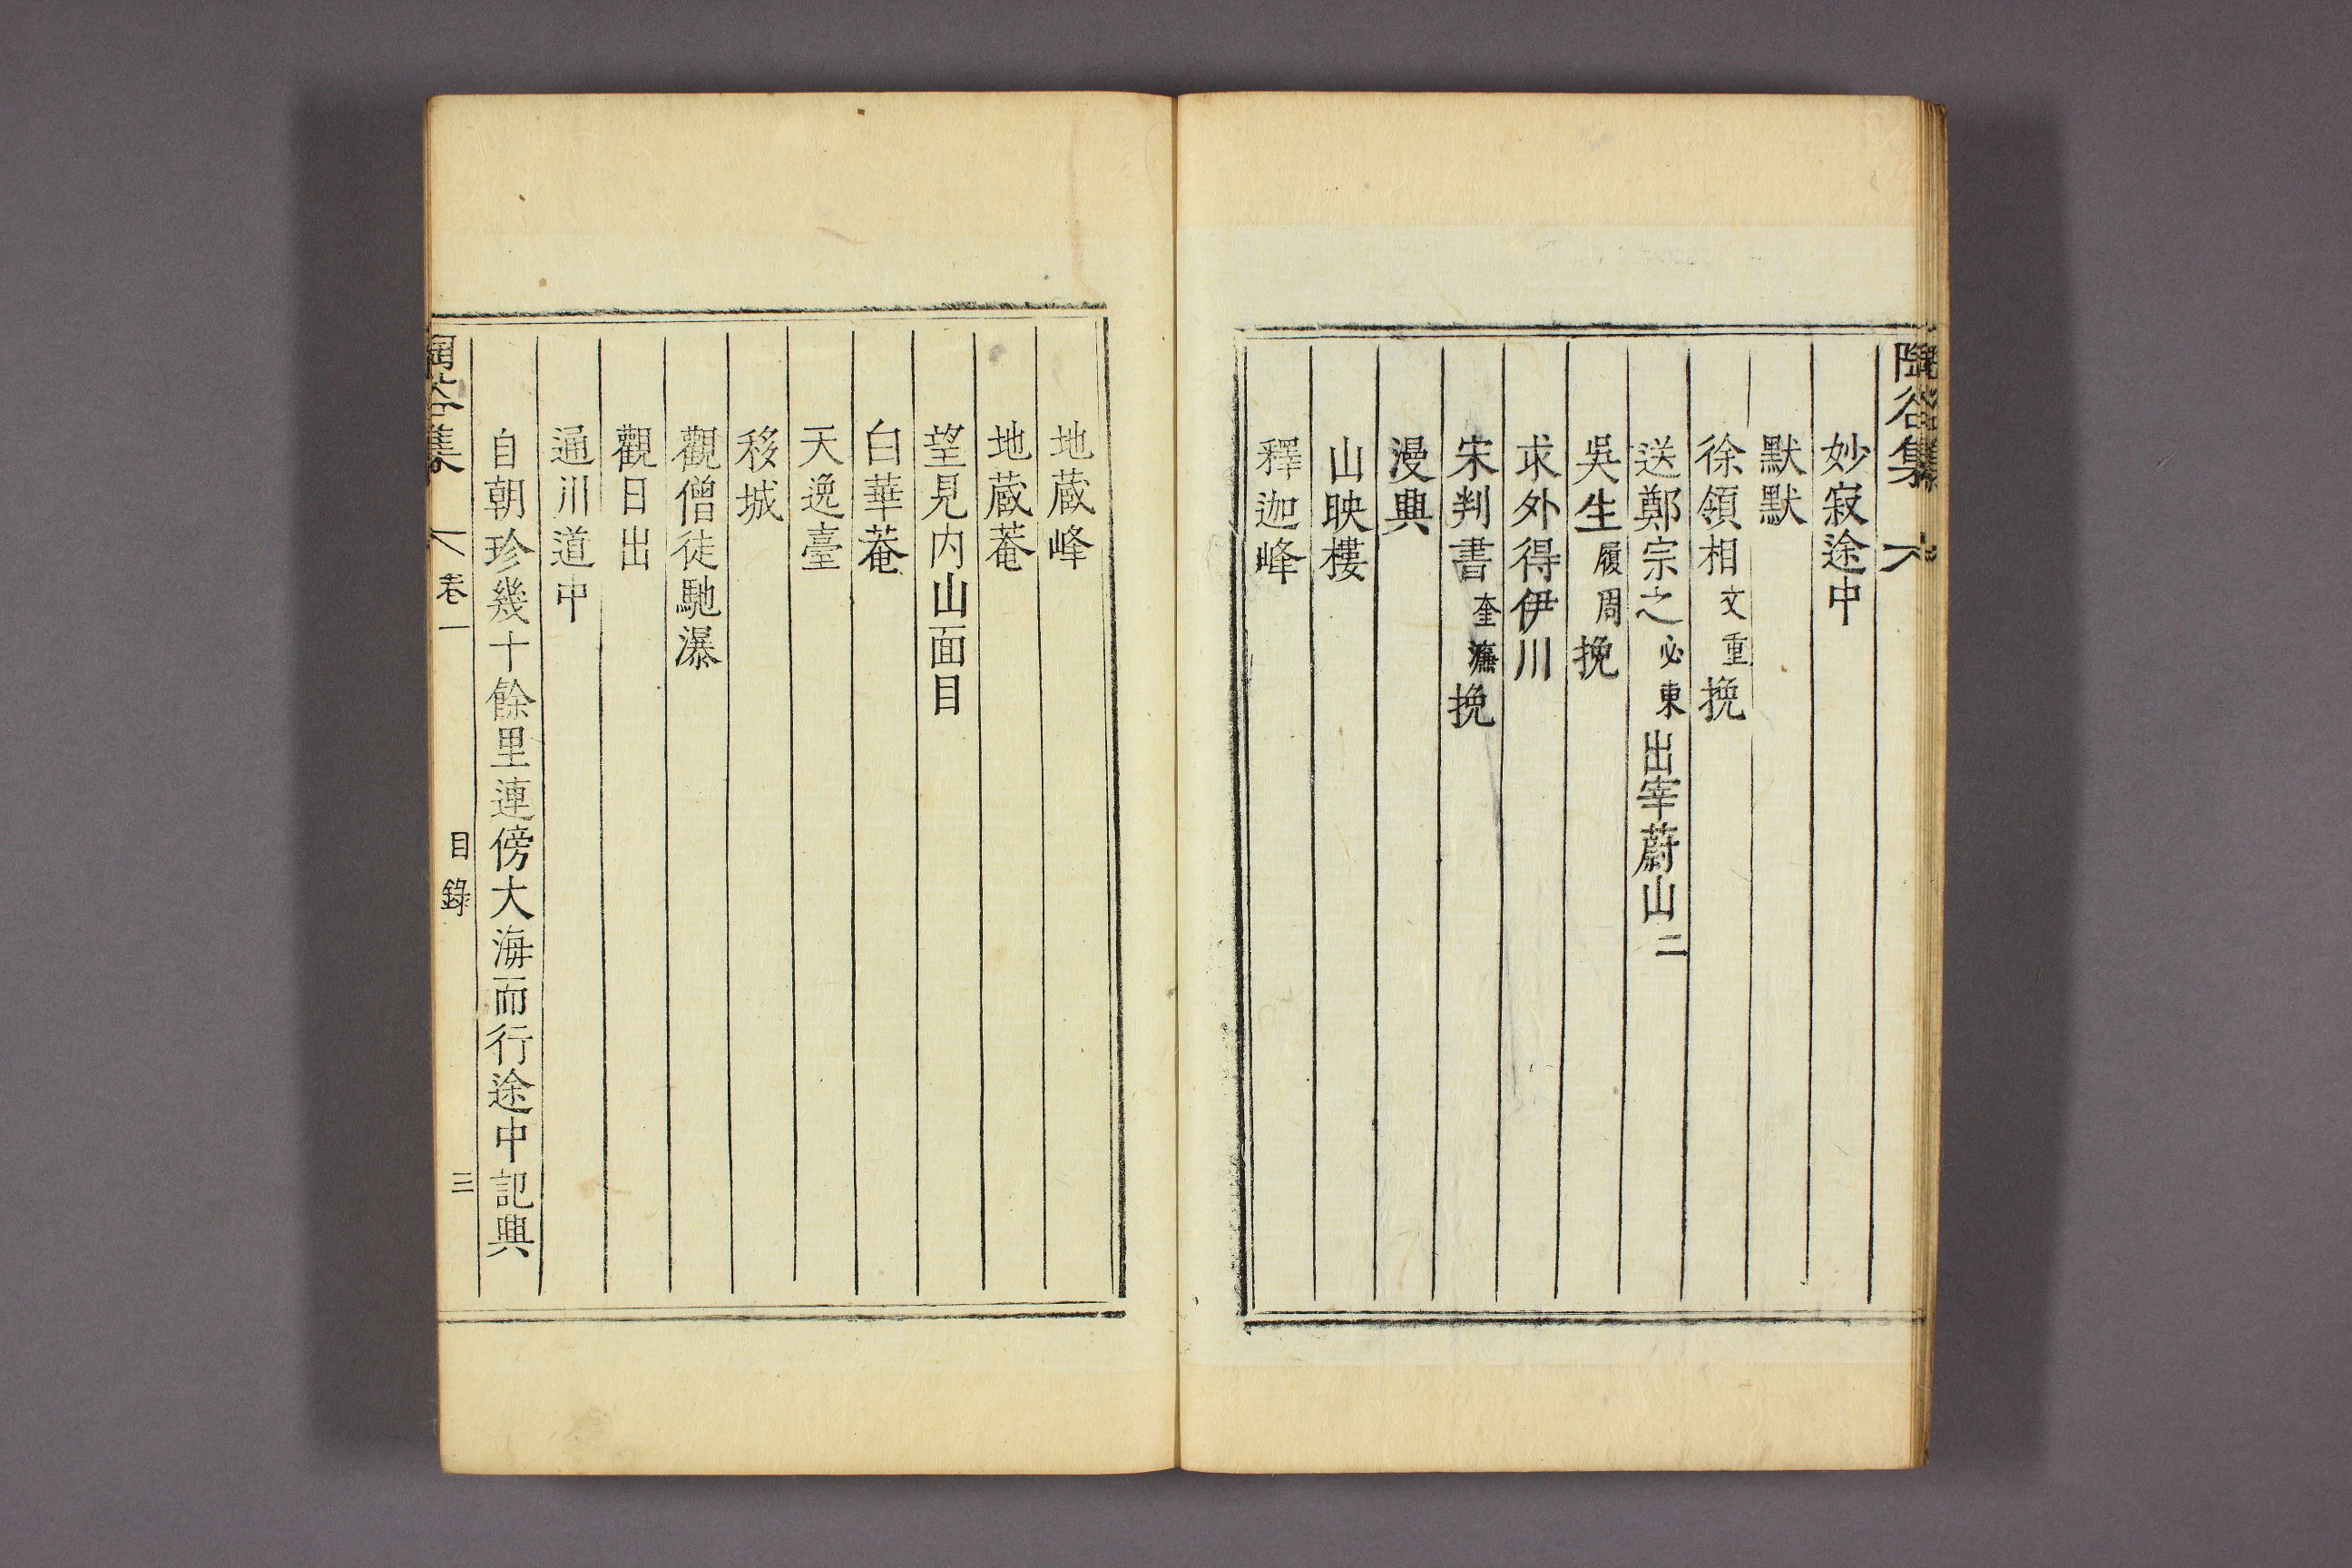 陶谷集
妙寂途中
默默
徐領相文重挽
送鄭宗之必東出宰蔚山二
吳生履周挽
求外得伊川
宋判書奎濂挽
漫興
山映樓
釋迦峰
地蔵峰
地蔵菴
望見内山面目
白華菴
天逸臺
移城
觀僧徒馳瀑
觀日出
通川道中
自朝珍幾十餘里連傍大海而行途中記興
陶谷集 卷一 目錄 三